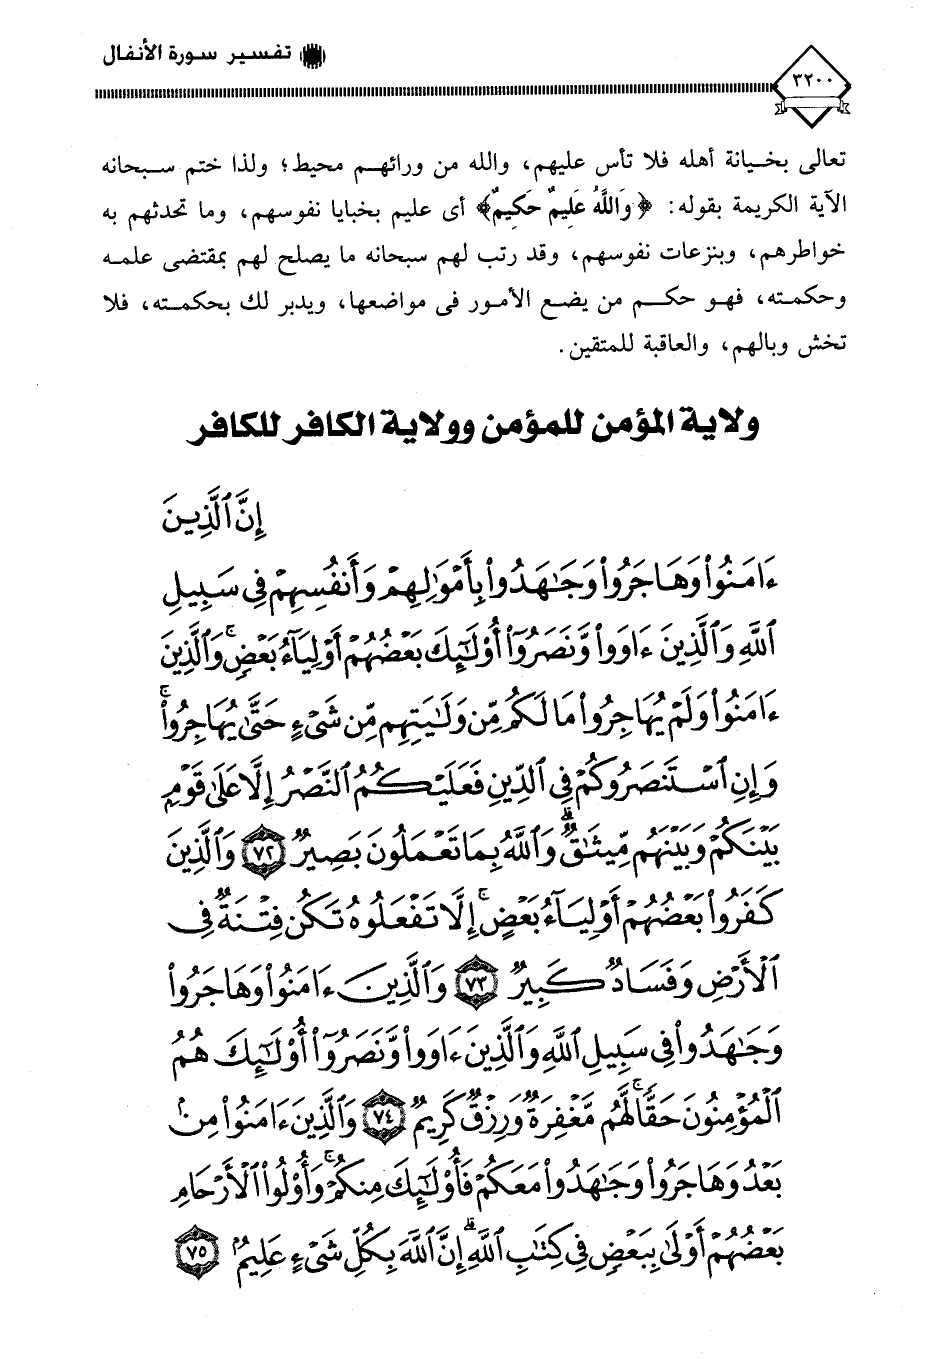 تفسير سورة الأنفال
٣٢٠٠
تعالى بخيانة أهله فلا تأس عليهم، والله من ورائهم محيط؛ ولذا ختم سبحانه
الآية الكريمة بقوله: ﴿ وَاللَّهُ عَلِيمٌ حَكِيمٌ﴾ أى عليم بخبايا نفوسهم، وما تحدثهم به
خواطرهم، وبنزعات نفوسهم، وقد رتب لهم سبحانه ما يصلح لهم بمقتضى علمه
وحكمته، فهو حكم من يضع الأمور فى مواضعها، ويدبر لك بحكمته، فلا
تخش وبالهم، والعاقبة للمتقين.
ولاية المؤمن للمؤمن وولاية الكافر للكافر
إِنَّ ٱلَّذِينَ
ءَامَنُوا۟ وَهَاجَرُوا۟ وَجَـٰهَدُوا۟ بِأَمْوَٰلِهِمْ وَأَنفُسِهِمْ فِى سَبِيلِ
ٱللَّهِ وَٱلَّذِينَ ءَاوَوا۟ وَّنَصَرُوٓا۟ أُو۟لَـٰٓئِكَ بَعْضُهُمْ أَوْلِيَآءُ بَعْضٍۚ وَٱلَّذِينَ
ءَامَنُوا۟ وَلَمْ يُهَاجِرُوا۟ مَا لَكُم مِّن وَلَـٰيَتِهِم مِّن شَىْءٍ حَتَّىٰ يُهَاجِرُوا۟ۚ
وَإِنِ ٱسْتَنصَرُوكُمْ فِى ٱلدِّينِ فَعَلَيْكُمُ ٱلنَّصْرُ إِلَّا عَلَىٰ قَوْمٍۭ
بَيْنَكُمْ وَبَيْنَهُم مِّيثَـٰقٌۗ وَٱللَّهُ بِمَا تَعْمَلُونَ بَصِيرٌ ٧٢ وَٱلَّذِينَ
كَفَرُوا۟ بَعْضُهُمْ أَوْلِيَآءُ بَعْضٍۚ إِلَّا تَفْعَلُوهُ تَكُن فِتْنَةٌ فِى
ٱلْأَرْضِ وَفَسَادٌ كَبِيرٌ ٧٣ وَٱلَّذِينَ ءَامَنُوا۟ وَهَاجَرُوا۟
وَجَـٰهَدُوا۟ فِى سَبِيلِ ٱللَّهِ وَٱلَّذِينَ ءَاوَوا۟ وَّنَصَرُوٓا۟ أُو۟لَـٰٓئِكَ هُمُ
ٱلْمُؤْمِنُونَ حَقًّاۚ لَّهُم مَّغْفِرَةٌ وَرِزْقٌ كَرِيمٌ ٧٤ وَٱلَّذِينَ ءَامَنُوا۟ مِنۢ
بَعْدُ وَهَاجَرُوا۟ وَجَـٰهَدُوا۟ مَعَكُمْ فَأُو۟لَـٰٓئِكَ مِنكُمْۚ وَأُو۟لُوا۟ ٱلْأَرْحَامِ
بَعْضُهُمْ أَوْلَىٰ بِبَعْضٍ فِى كِتَـٰبِ ٱللَّهِۗ إِنَّ ٱللَّهَ بِكُلِّ شَىْءٍ عَلِيمٌۢ ٧٥